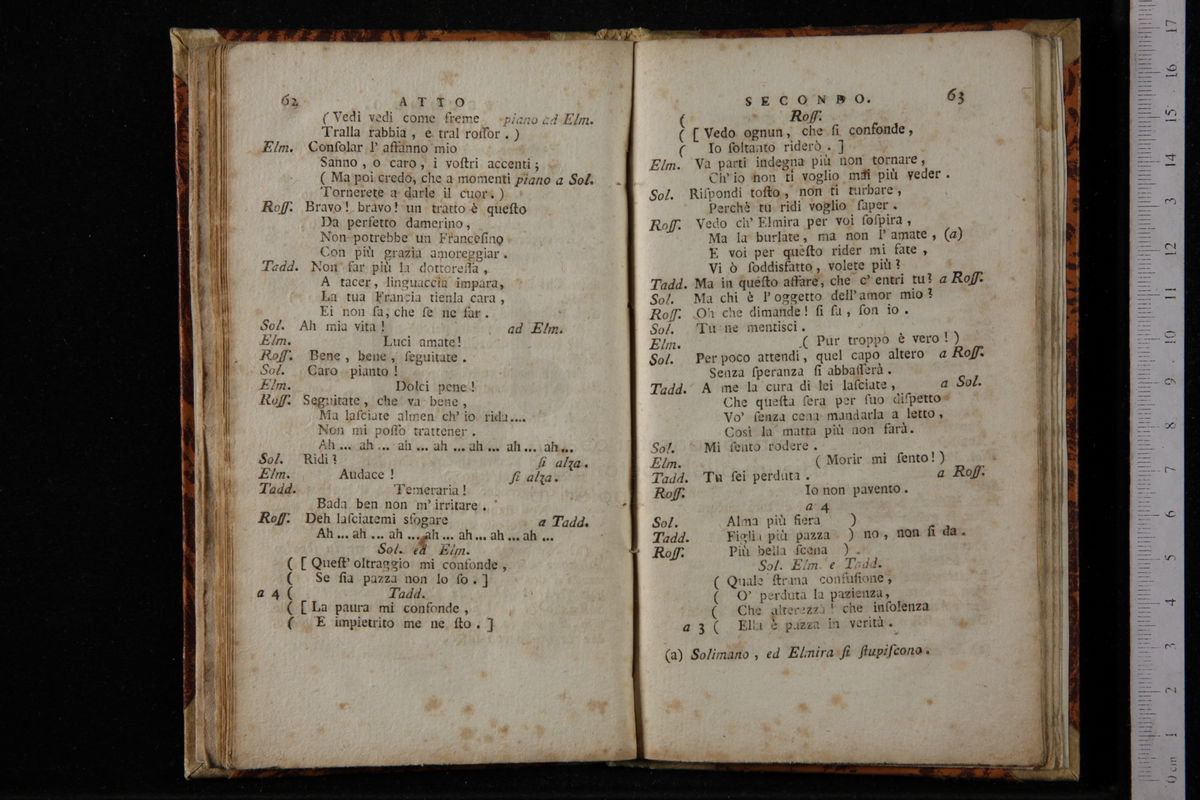 62 ATTO
( Vedi vedi come freme piano ad Elm.
Tralla rabbia , e tral roſſor . )
Elm. Conſolar l' affanno mio
Sanno , o caro , i voſtri accenti ;
( Ma poi credo, che a momenti piano a Sol.
Tornerete a darle il cuor . )
Roſſ. Bravo ! bravo ! un tratto è queſto
Da perfetto damerino ,
Non potrebbe un Franceſino
Con più grazia amoreggiar .
Tadd. Non far più la dottoreſſa ,
A tacer, linguaccia impara,
La tua Francia tienla cara ,
Ei non ſa, che ſe ne far .
Sol. Ah mia vita ! ad Elm.
Elm. Luci amate !
Roſſ. Bene , bene , ſeguitate .
Sol. Caro pianto !
Elm. Dolci pene !
Roſſ. Seguitate , che va bene ,
Ma laſciate almen ch' io rida....
Non mi poſſo trattener .
Ah ... ah ... ah ... ah ... ah ... ah ... ah...
Sol. Ridi ? ſi alza .
Elm. Audace ! ſi alza .
Tadd. Temeraria !
Bada ben non m' irritare .
Roſſ. Deh laſciatemi sfogare a Tadd.
Ah ... ah ... ah ... ah ... ah ... ah ... ah ...
Sol. ed Elm.
( [ Queſt' oltraggio mi confonde ,
( Se ſia pazza non lo ſo . ]
a 4 ( Tadd.
( [ La paura mi confonde ,
( E impietrito me ne ſto . ]
SECONDO. 63
( Roſſ.
( [ Vedo ognun, che ſi confonde ,
( Io ſoltanto riderò . ]
Elm. Va parti indegna più non tornare ,
Ch' io non ti voglio mai più veder .
Sol. Riſpondi toſto , non ti turbare ,
Perchè tu ridi voglio ſaper .
Roſſ. Vedo ch' Elmira per voi ſoſpira ,
Ma la burlate , ma non l' amate , (a)
E voi per queſto rider mi fate ,
Vi ò ſoddisfatto , volete più ?
Tadd. Ma in queſto affare, che c' entri tu ? a Roſſ.
Sol. Ma chi è l' oggetto dell' amor mio ?
Roſſ. Oh che dimande ! ſi ſa , ſon io .
Sol. Tu ne mentiſci .
Elm. ( Pur troppo è vero ! )
Sol. Per poco attendi , quel capo altero a Roſſ.
Senza ſperanza ſi abbaſſerà .
Tadd. A me la cura di lei laſciate , a Sol.
Che queſta ſera per ſuo diſpetto
Vo' ſenza cena mandarla a letto ,
Così la matta più non farà.
Sol. Mi ſento rodere .
Elm. ( Morir mi ſento ! )
Tadd. Tu ſei perduta . a Roſſ.
Roſſ. Io non pavento .
a 4
Sol. Alma più fiera )
Tadd. Figlia più pazza ) no , non ſi da .
Roſſ. Più bella ſcena )
Sol. Elm. e Tadd.
( Quale ſtrana confuſione ,
( O' perduta la pazienza ,
( Che alterezza ! che inſolenza
a 3 ( Ella è pazza in verità .
(a) Solimano , ed Elmira ſi ſtupiſcono .
0 cm 1 2 3 4 5 6 7 8 9 10 11 12 13 14 15 16 17